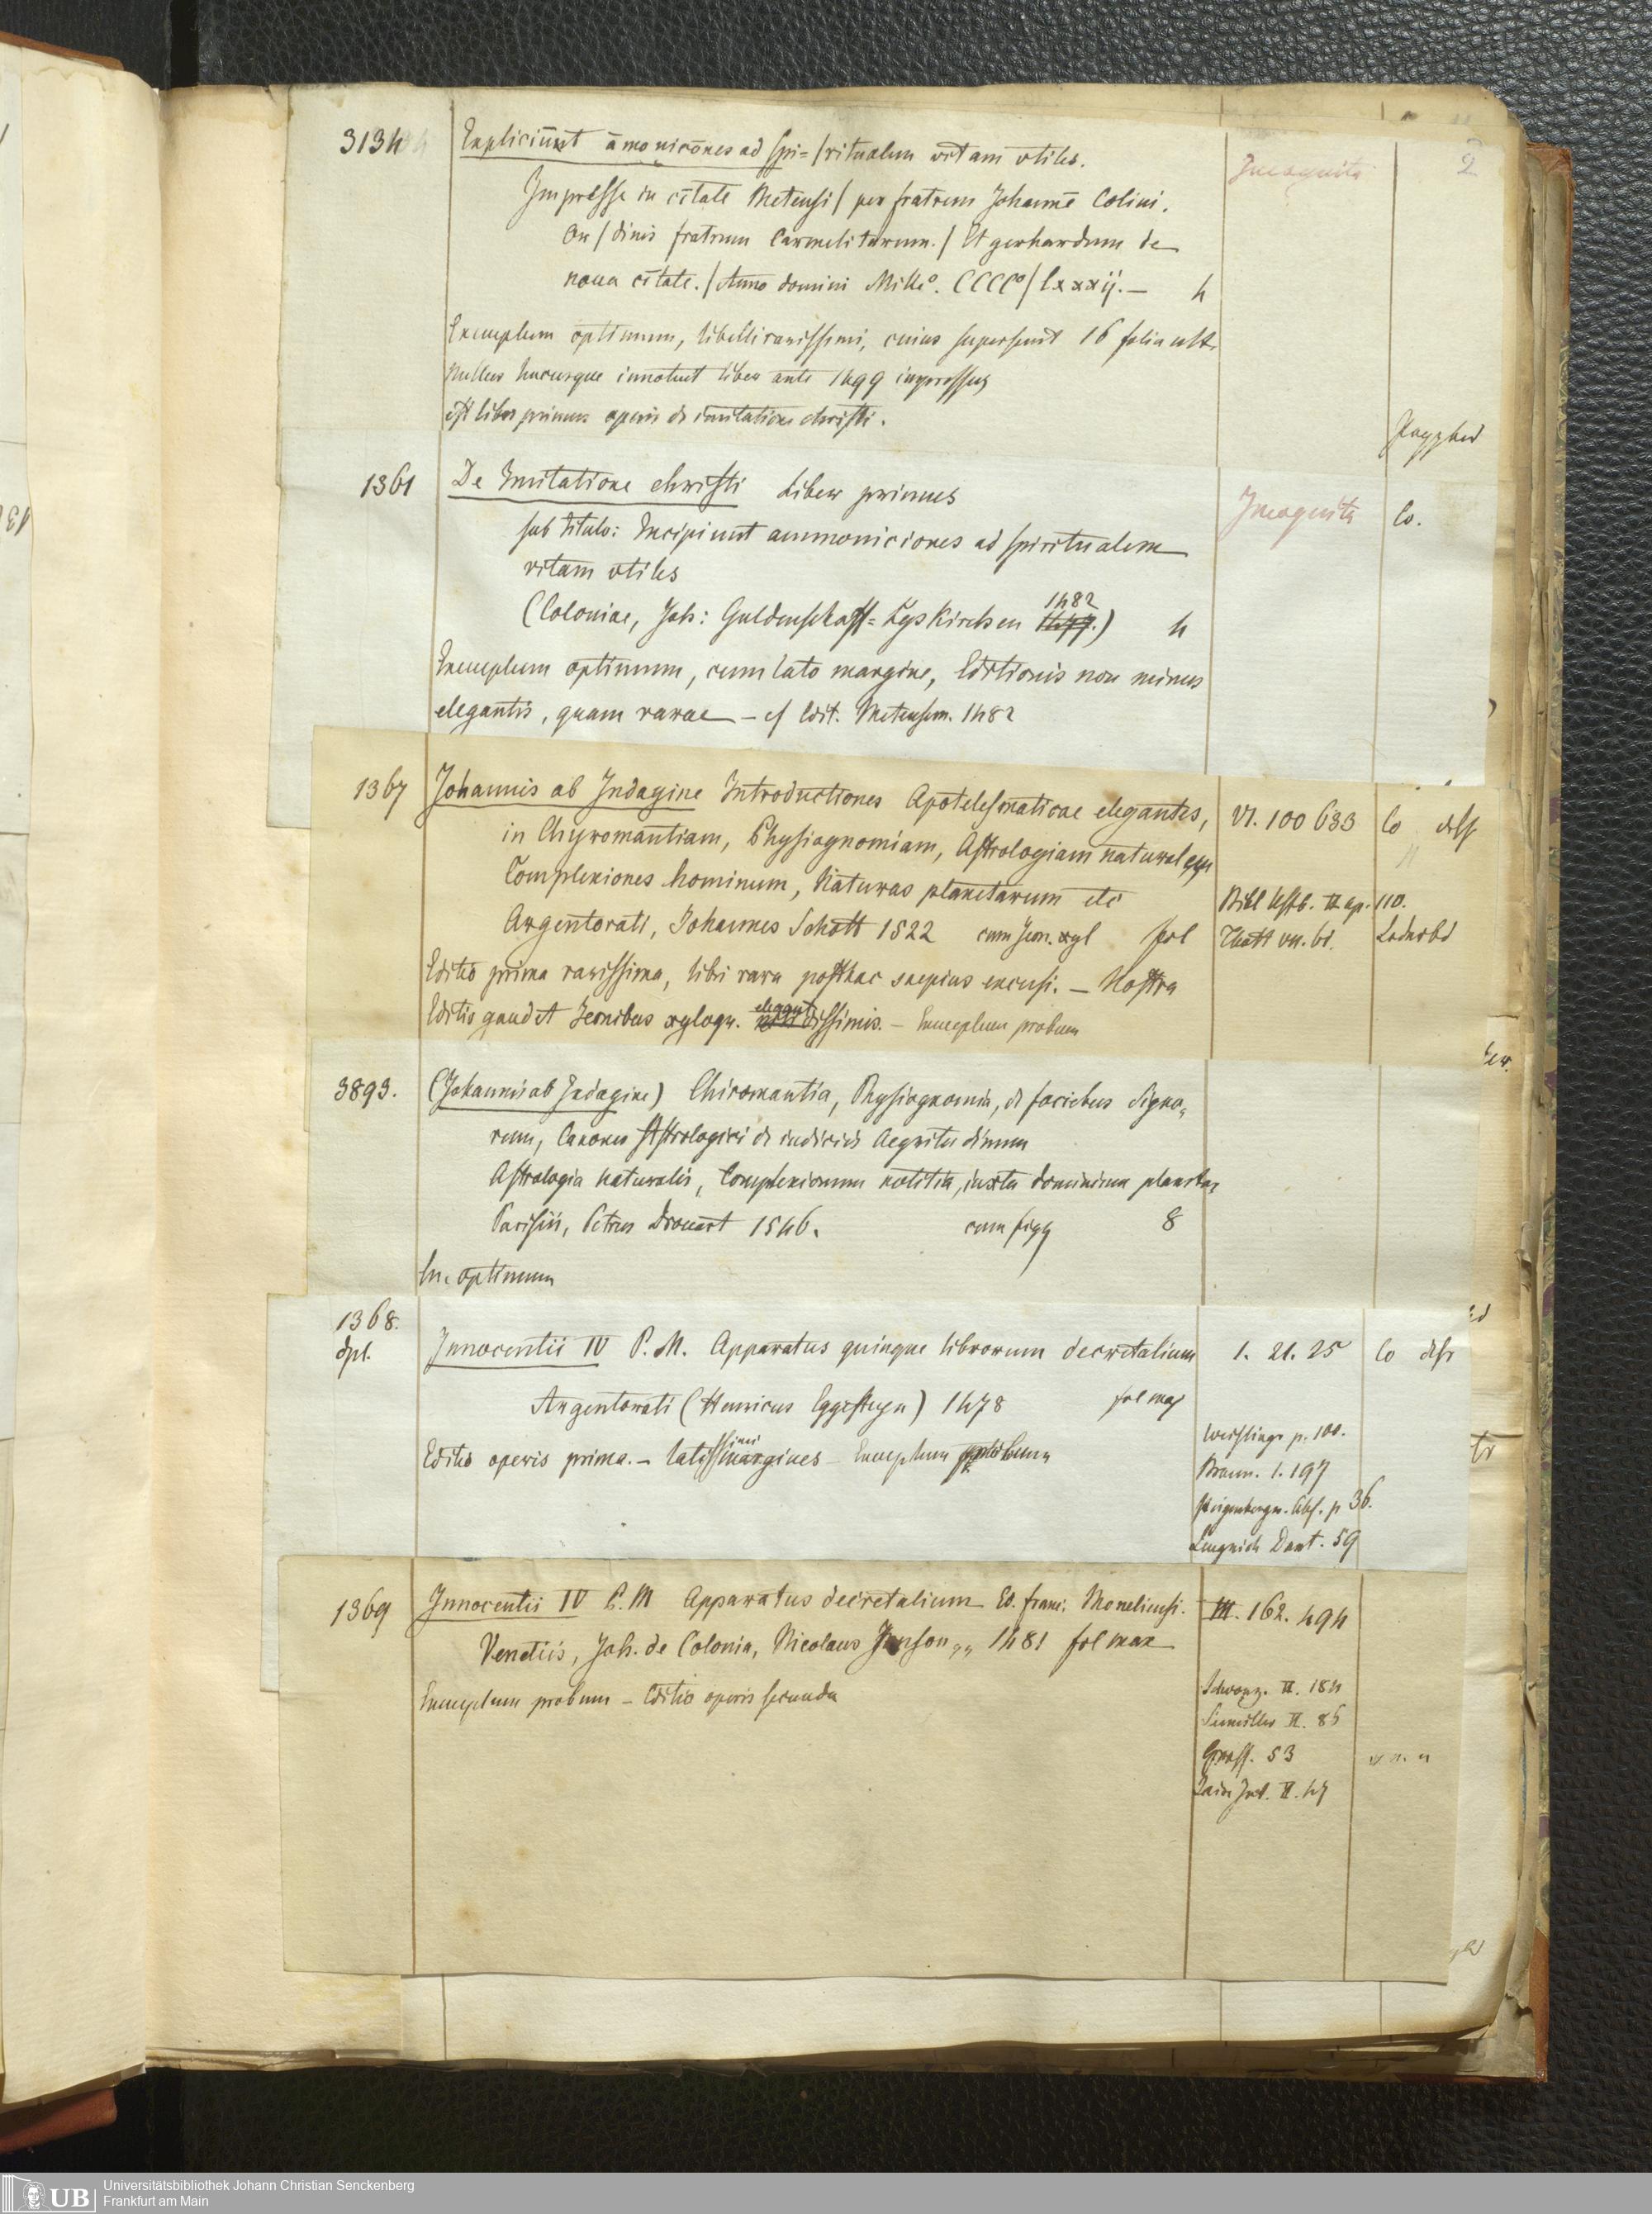 3134
Expliciūt āmonicōnes ad spi= /ritualem vitam vtiles.
Incognita
2
Impresse in cītate Metensi / per fratrem Johannē Colini.
Or / dinis fratrum Carmelitarum. / Et gerhardum de
noua cītate. / Anno domini Mille°. CCCC° / lxxxij. — 4
Exemplum optimum, libelli rarissimi, cuius supersunt 16 folia ult.
Nullus hucusque innotuit liber ante 1499 impressus
est liber primus operis de imitatione christi.
Pappbd
1361
De Imitatione christi Liber primus
Incognita
Co.
sub titulo: Incipiunt ammoniciones ad spiritualem
vitam vtiles
1482
(Coloniae, Joh: Guldenschaff= Lyskirchen 1477.) 4
Exemplum optimum, cum lato margine, Editionis non minus
elegantis, quam rarae — cf Edit. Metensem. 1482
1367
Johannis ab Indagine Introductiones Apotelesmaticae elegantes,
VI. 100 633
Co
in Chyromantiam, Physiognomiam, Astrologiam naturalem
Complexiones hominum, Naturas planetarum etc
110.
Argentorati, Johannes Schott 1522 cum Jcon. xyl fol
Thott VII. 61.
Lederbd
Editio prima rarissima, libri rara posthac saepius excusi. — Nostra
Editio gaudet Jconibus xylogr. elegantissimis. — Exemplum probum
3893.
(Johannis ab Indagine) Chiromantia, Physiognomia, de faciebus Signo,
rum, Canones Astrologici de iudiciis Aegritudinum
Astrologia naturalis, Complexionum notitia, iuxta dominium planetar
Parisiis, Petrus Drouart 1546. cum figg 8
Ex. optimum
1368.
dpl.
Innocentii IV P. M. Apparatus quinque librorum decretalium
1. 21. 25
Co
Argentorati (Henricus Eggesteyn) 1478 fol maj
Editio operis prima. — latissimi margines — Exemplum
Weislinger p. 100.
Braun. 1. 197
p 36.
Lengnich Dant. 59
1369
Innocentii IV P. M Apparatus decretalium Ed. franc. Moneliensi.
III. 162. 494
Venetiis, Joh. de Colonia, Nicolaus Jenson,, 1481 fol max
Exemplum probum — Editio operis secunda
Schwarz. II. 184
Seemiller II. 86
Grass. 53
II. 47
Universitätsbibliothek Johann Christian Senckenberg
UB
Frankfurt am Main